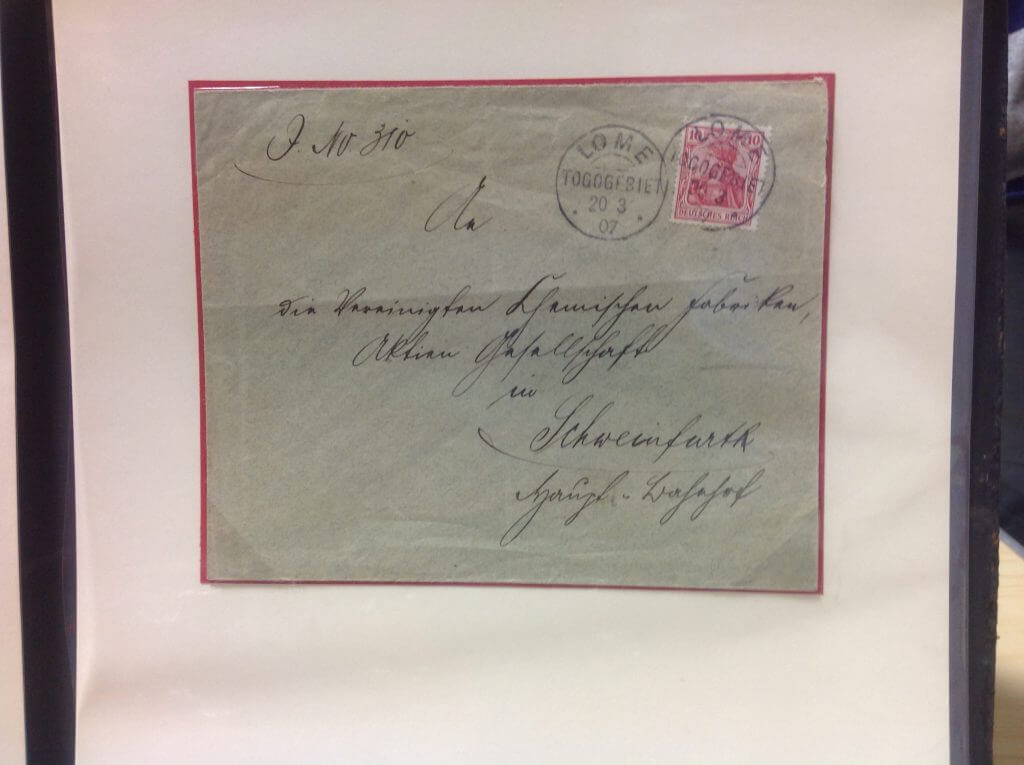 J. No. 310
LOME
TOGOGEBIET
20 3
07
LOME
TOGOGEBIET
20 3
10 10
DEUTSCHES REICH
An
die Vereinigten Chemischen Fabriken,
Aktien Gesellschaft
in
Schweinfurth
Haupt-Bahnhof